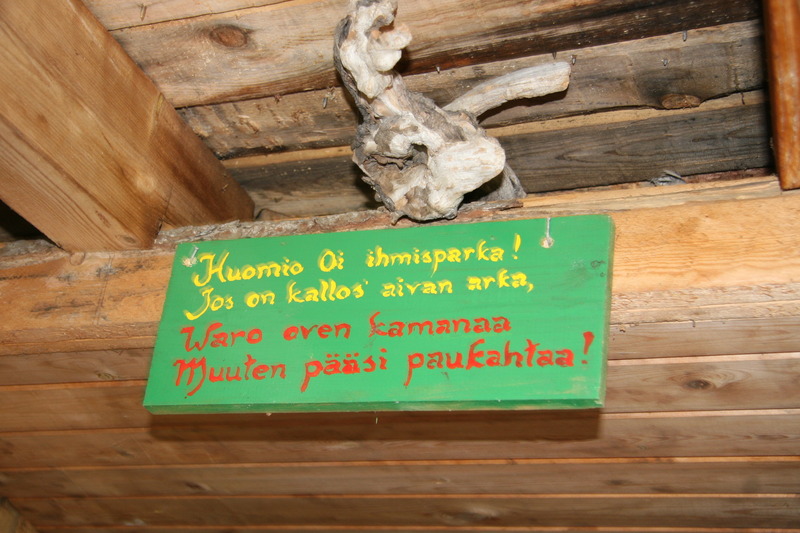 Huomio Oi ihmisparka!
Jos on kallos' aivan arka,
Waro oven kamanaa
Muuten pääsi paukahtaa!